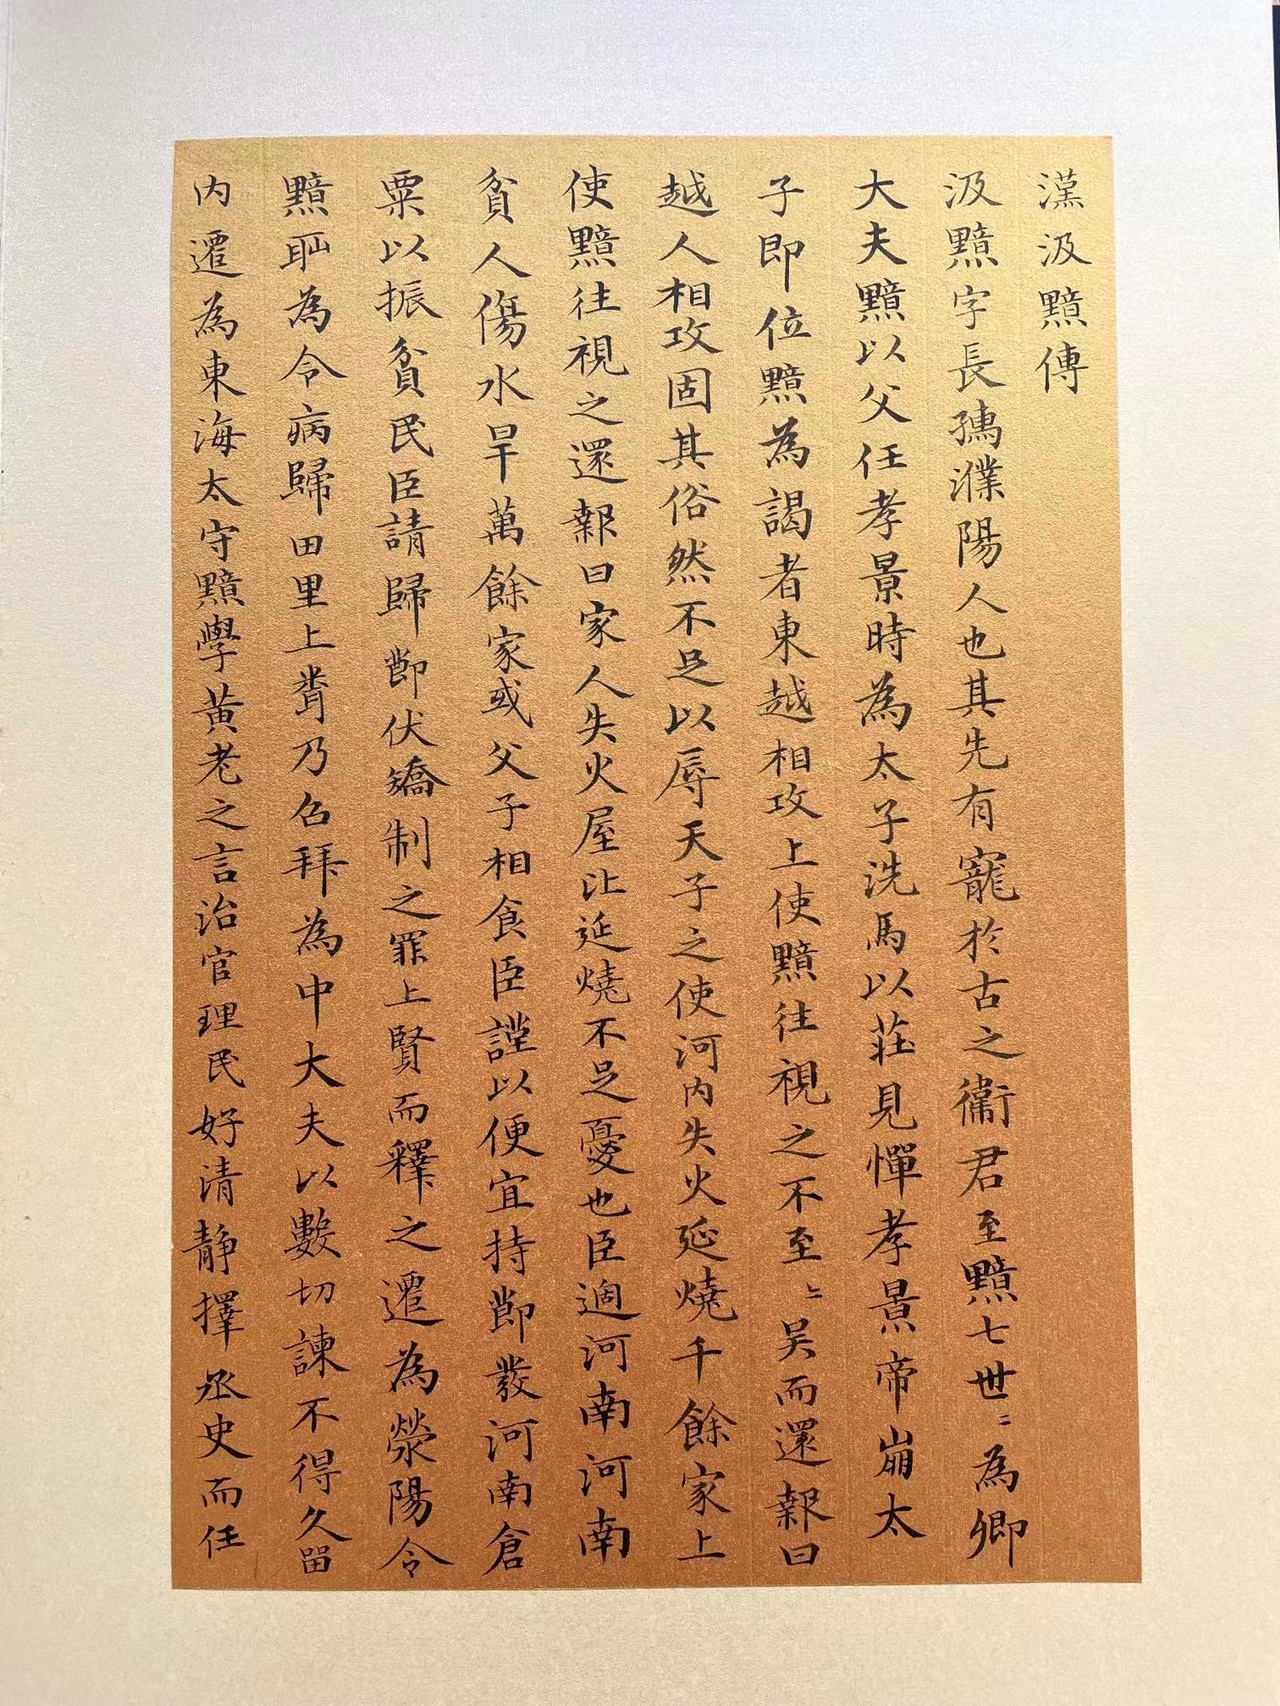 漢汲黯傳
汲黯字長孺濮陽人也其先有寵於古之衞君至黯七世〻為卿
大夫黯以父任孝景時為太子洗馬以莊見憚孝景帝崩太
子即位黯為謁者東越相攻上使黯往視之不至〻吴而還報曰
越人相攻固其俗然不足以辱天子之使河内失火延燒千餘家上
使黯往視之還報曰家人失火屋比延燒不足憂也臣過河南河南
貧人傷水旱萬餘家或父子相食臣謹以便宜持節發河南倉
粟以振貧民臣請歸節伏矯制之罪上賢而釋之遷為滎陽令
黯耻為令病歸田里上聞乃召拜為中大夫以數切諫不得久留
内遷為東海太守黯學黄老之言治官理民好清靜擇丞史而任